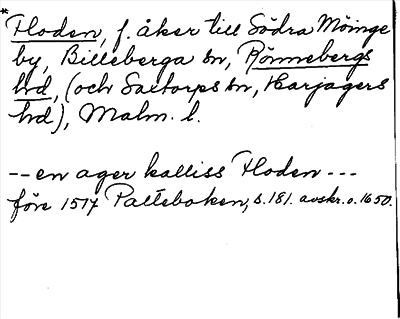 *
Floden, f. åker till Södra Möinge
by, Billeberga sn, Rönnebergs
hd, (och Saxtorps sn, Harjagers
hd), Malm. l.
-- en ager kalliss Floden ---
före 1517 Palteboken, s. 181. avskr. o. 1650.